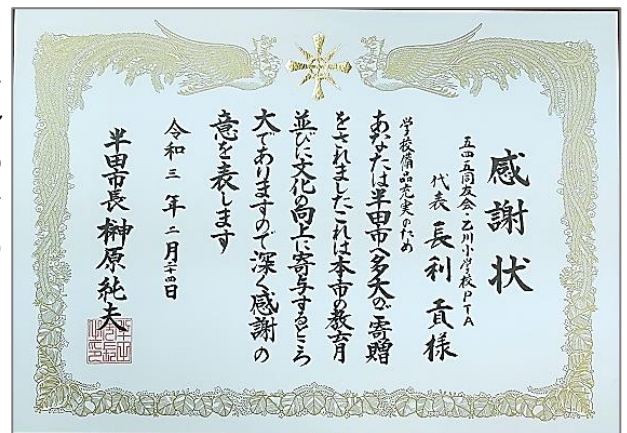 感謝状
五四五同友会・乙川小学校PTA
代表 長利 貢 様
学校備品充実のため
あなたは半田市へ多大のご寄贈
をされましたこれは本市の教育
並びに文化の向上に寄与するところ
大でありますので深く感謝の
意を表します
令和三年二月二十四日
半田市長 榊原純夫